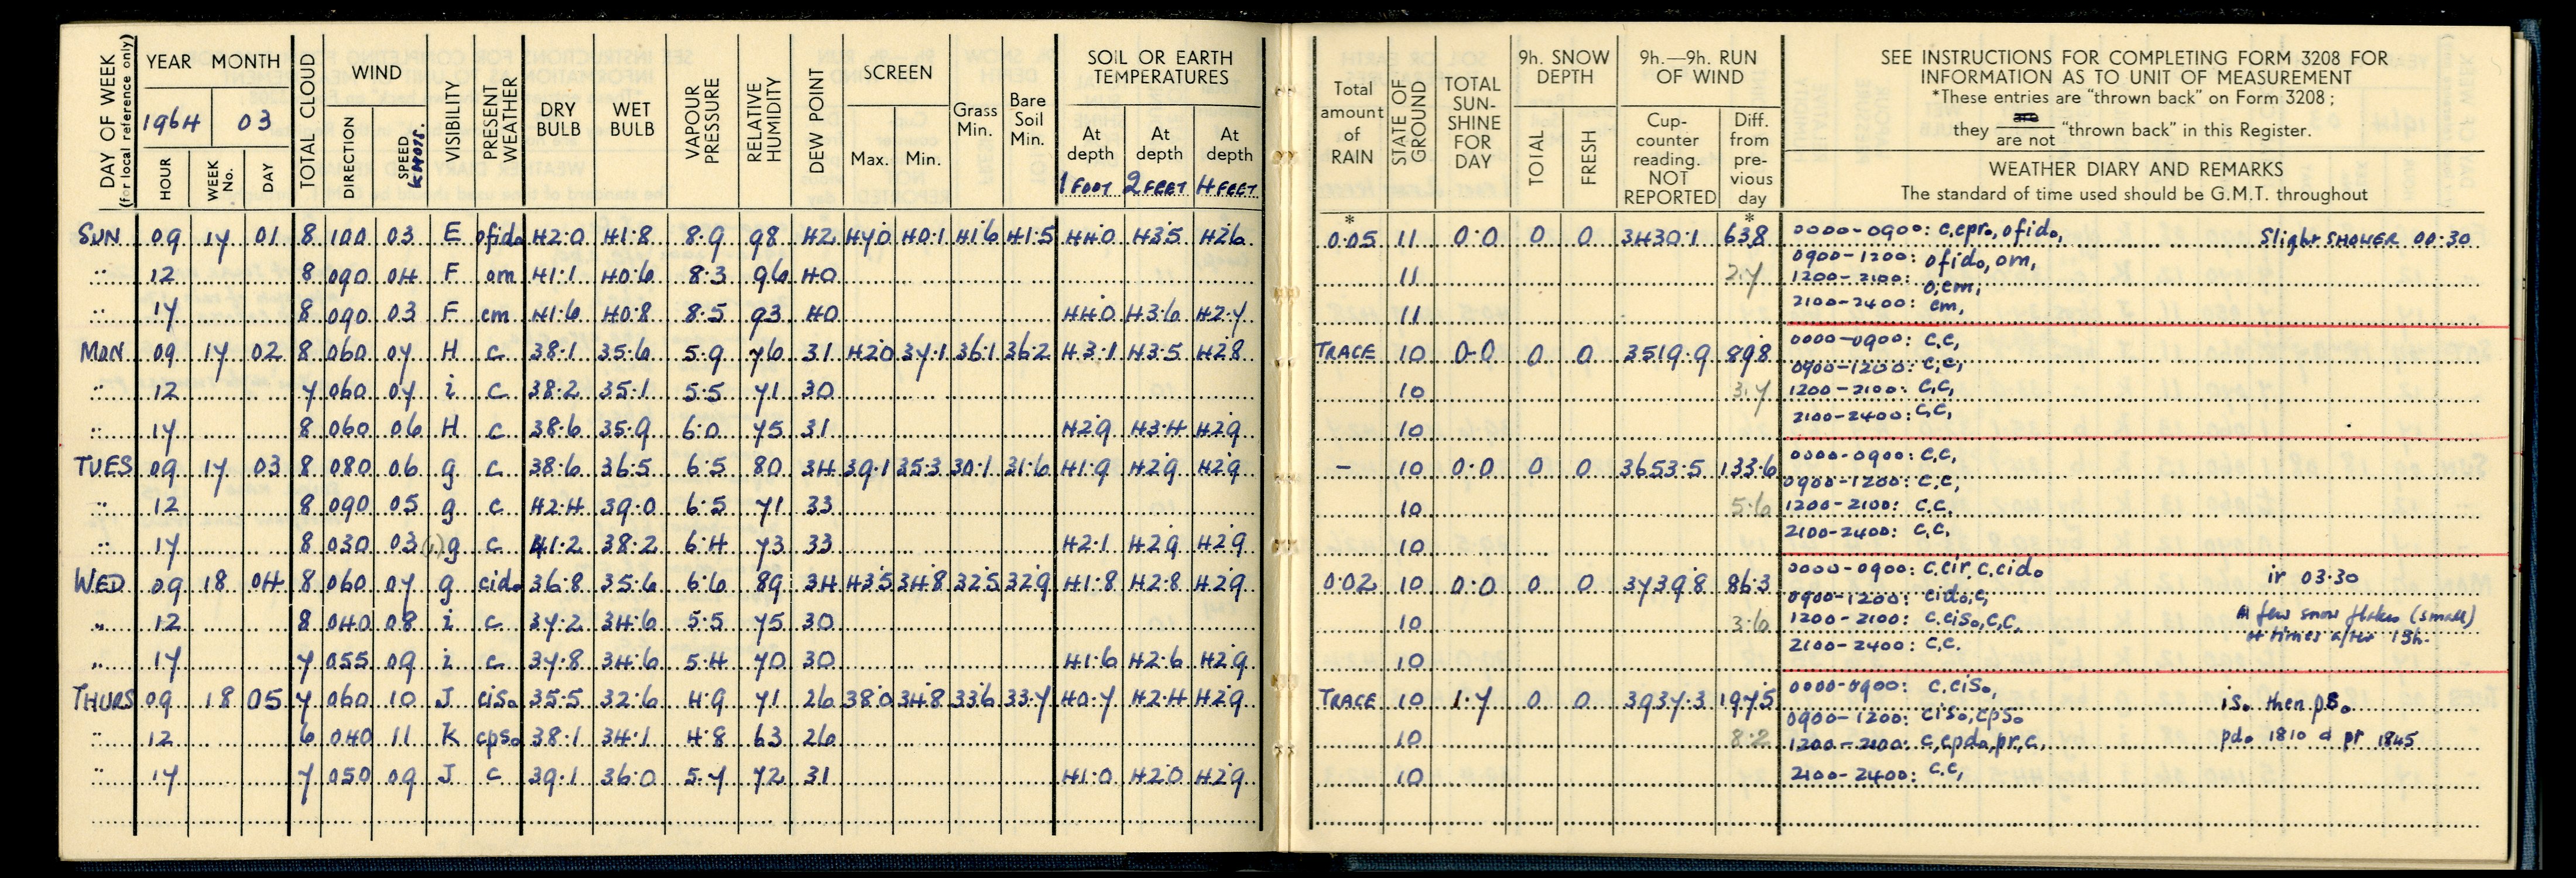 DAY OF WEEK
(for local reference only)
YEAR MONTH
1964 03
HOUR WEEK No. DAY
TOTAL CLOUD
WIND
DIRECTION SPEED KNOTS.
VISIBILITY
PRESENT WEATHER
DRY BULB
WET BULB
VAPOUR PRESSURE
RELATIVE HUMIDITY
DEW POINT
SCREEN
Max. Min.
Grass Min.
Bare Soil Min.
SOIL OR EARTH TEMPERATURES
At depth At depth At depth
1 FOOT 2 FEET 4 FEET
SUN 09 17 01 8 100 03 E ofido 42.0 41.8 8.9 98 42 47.0 40.1 41.6 41.5 44.0 43.5 42.6
" 12 8 090 04 F om 41.1 40.6 8.3 96 40
" 17 8 090 03 F cm 41.6 40.8 8.5 93 40 44.0 43.6 42.7
MON 09 17 02 8 060 07 H c 38.1 35.6 5.9 76 31 42.0 37.1 36.1 36.2 43.1 43.5 42.8
" 12 7 060 07 i c 38.2 35.1 5.5 71 30
" 17 8 060 06 H c 38.6 35.9 6.0 75 31 42.9 43.4 42.9
TUES 09 17 03 8 080 06 g c 38.6 36.5 6.5 80 34 39.1 35.3 30.1 31.6 41.9 42.9 42.9
" 12 8 090 05 g c 42.4 39.0 6.5 71 33
" 17 8 030 03 (i) g c 41.2 38.2 6.4 73 33 42.1 42.9 42.9
WED 09 18 04 8 060 07 g cido 36.8 35.6 6.6 89 34 43.5 34.8 32.5 32.9 41.8 42.8 42.9
" 12 8 040 08 i c 37.2 34.6 5.5 75 30
" 17 7 055 09 i c 37.8 34.6 5.4 70 30 41.6 42.6 42.9
THURS 09 18 05 7 060 10 J ciso 35.5 32.6 4.9 71 26 38.0 34.8 33.6 33.7 40.7 42.4 42.9
" 12 6 040 11 K cpso 38.1 34.1 4.8 63 26
" 17 7 050 09 J c 39.1 36.0 5.7 72 31 41.0 42.0 42.9
Total amount of RAIN
STATE OF GROUND
TOTAL SUN-SHINE FOR DAY
9h. SNOW DEPTH
TOTAL FRESH
9h.—9h. RUN OF WIND
Cup-counter reading. NOT REPORTED
Diff. from pre-vious day
SEE INSTRUCTIONS FOR COMPLETING FORM 3208 FOR
INFORMATION AS TO UNIT OF MEASUREMENT
*These entries are "thrown back" on Form 3208;
they are / are not "thrown back" in this Register.
WEATHER DIARY AND REMARKS
The standard of time used should be G.M.T. throughout
* *
0.05 11 0.0 0 0 3430.1 63.8 0000-0900: c,cpro, ofido, Slight SHOWER 00.30
0900-1200: ofido, om,
11 2.7 1200-2100: o,cm,
11 2100-2400: cm,
TRACE 10 0.0 0 0 3519.9 89.8 0000-0900: c,c,
0900-1200: c,c,
10 3.7 1200-2100: c,c,
10 2100-2400: c,c,
- 10 0.0 0 0 3653.5 133.6 0000-0900: c,c,
0900-1200: c,c,
10 5.6 1200-2100: c,c,
10 2100-2400: c,c,
0.02 10 0.0 0 0 3739.8 86.3 0000-0900: c,cir,c,cido ir 03.30
0900-1200: cido,c,
10 3.6 1200-2100: c,ciso,c,c, A few snow flakes (small)
at times after 13h.
10 2100-2400: c,c.
TRACE 10 1.7 0 0 3937.3 197.5 0000-0900: c,ciso, iso then pso
0900-1200: ciso,cpso
10 8.2 1200-2100: c,cpdo,pr,c, pdo 1810 & pr 1845
10 2100-2400: c,c,